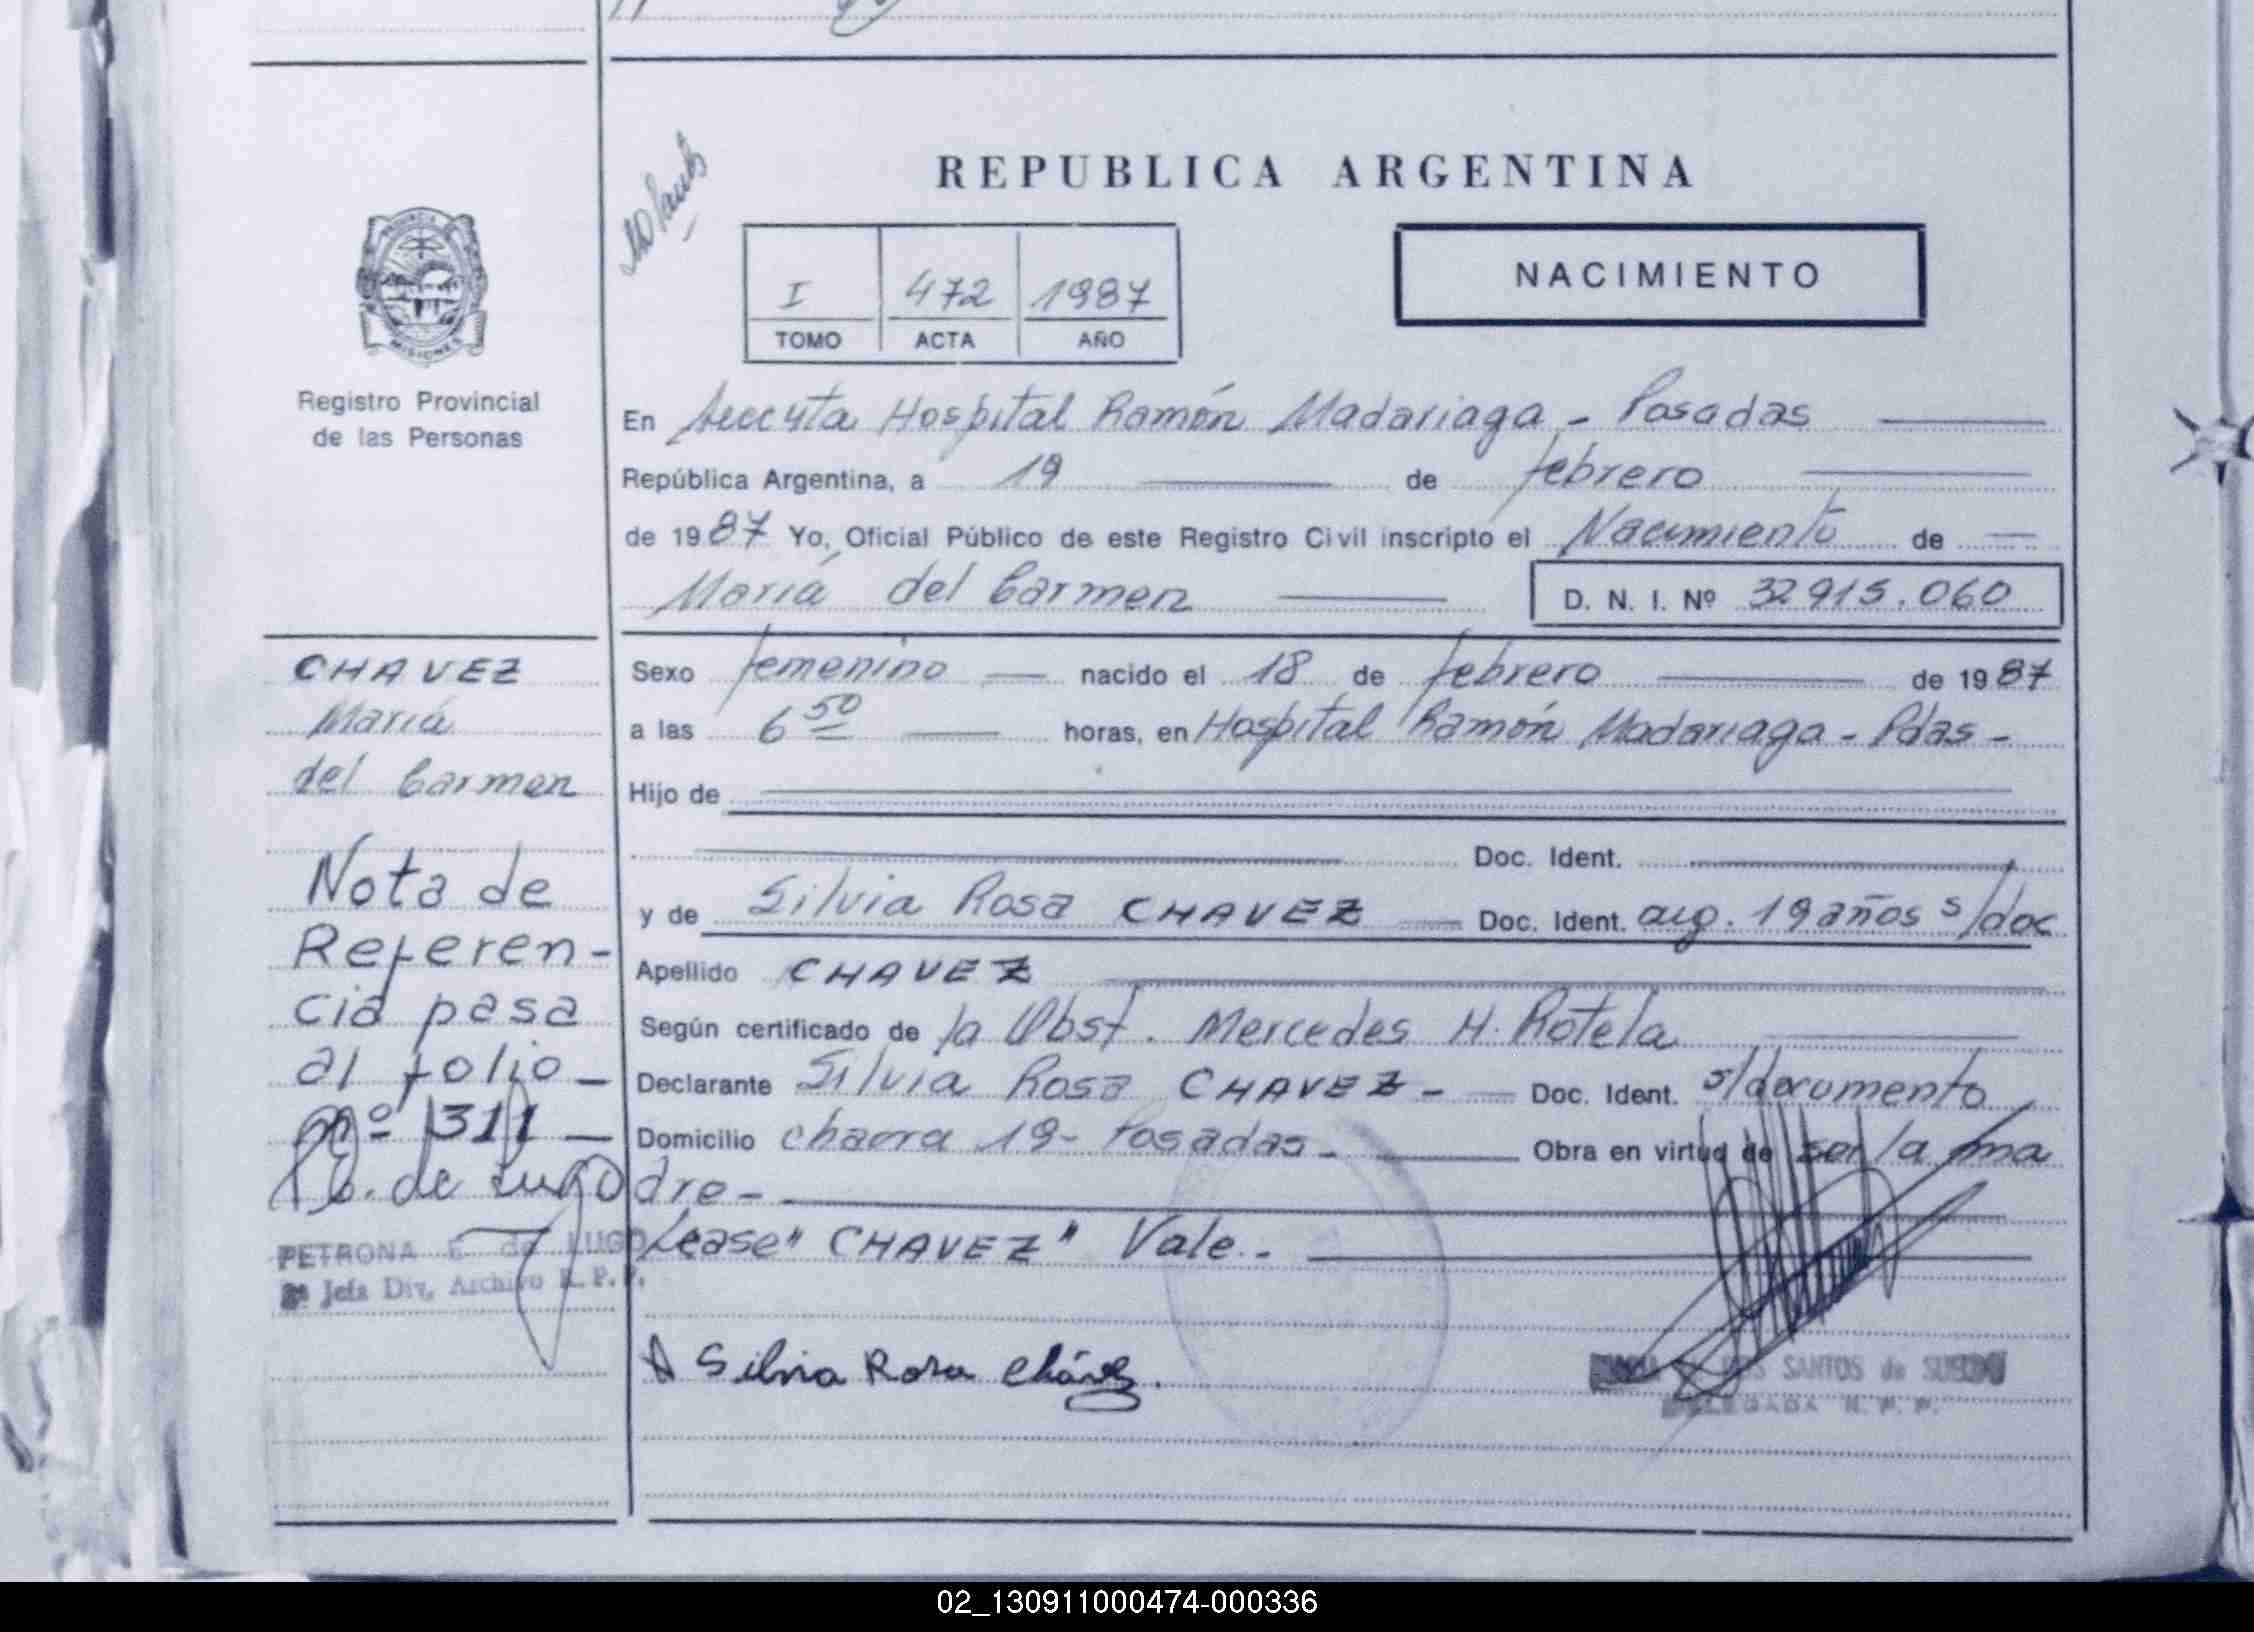 REPUBLICA ARGENTINA
PROVINCIA DE
MISIONES
Registro Provincial
de las Personas
I 472 1987
TOMO ACTA AÑO
NACIMIENTO
En Secc 4ta Hospital Ramón Madariaga - Posadas
República Argentina, a 19 de febrero
de 1987 Yo, Oficial Público de este Registro Civil inscripto el Nacimiento de
María del Carmen
D. N. I. Nº 32915.060
CHAVEZ
María
del Carmen
Nota de
Referen-
cia pasa
al folio -
nº 1311 -
de Lugo
PETRONA de LUGO
2ª Jefa Div. Archivo R. P. P.
Sexo femenino nacido el 18 de febrero de 1987
a las 6 50 horas, en Hospital Ramón Madariaga - Pdas -
Hijo de
Doc. Ident.
y de Silvia Rosa CHAVEZ Doc. Ident. arg. 19 años s/doc
Apellido CHAVEZ
Según certificado de la Obst. Mercedes H. Rotela
Declarante Silvia Rosa CHAVEZ - Doc. Ident. s/documento
Domicilio chacra 19 - Posadas - Obra en virtud de ser la ma
dre -
Lease "CHAVEZ" Vale -
Silvia Rosa Chávez.
DOS SANTOS de
DELEGADA R. P. P.
02_130911000474-000336